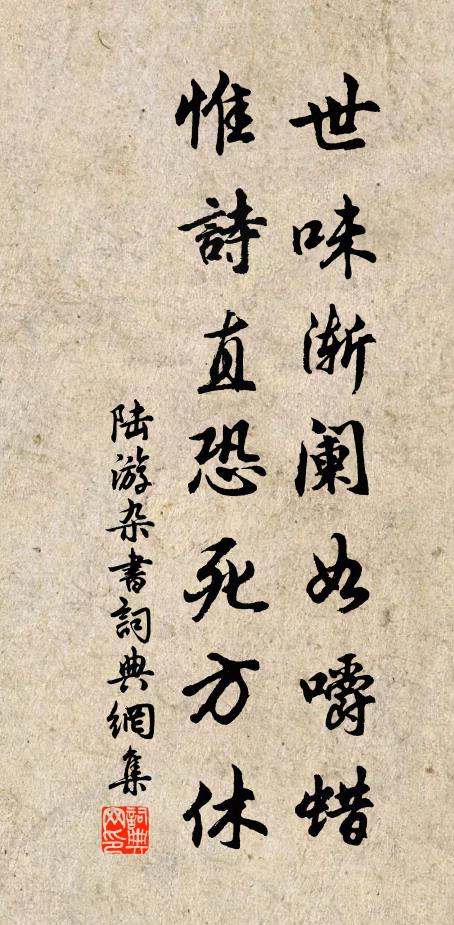 世味渐阑如嚼蜡
惟詩直恐死方休
陆游杂書詞典網集
詞典
网印